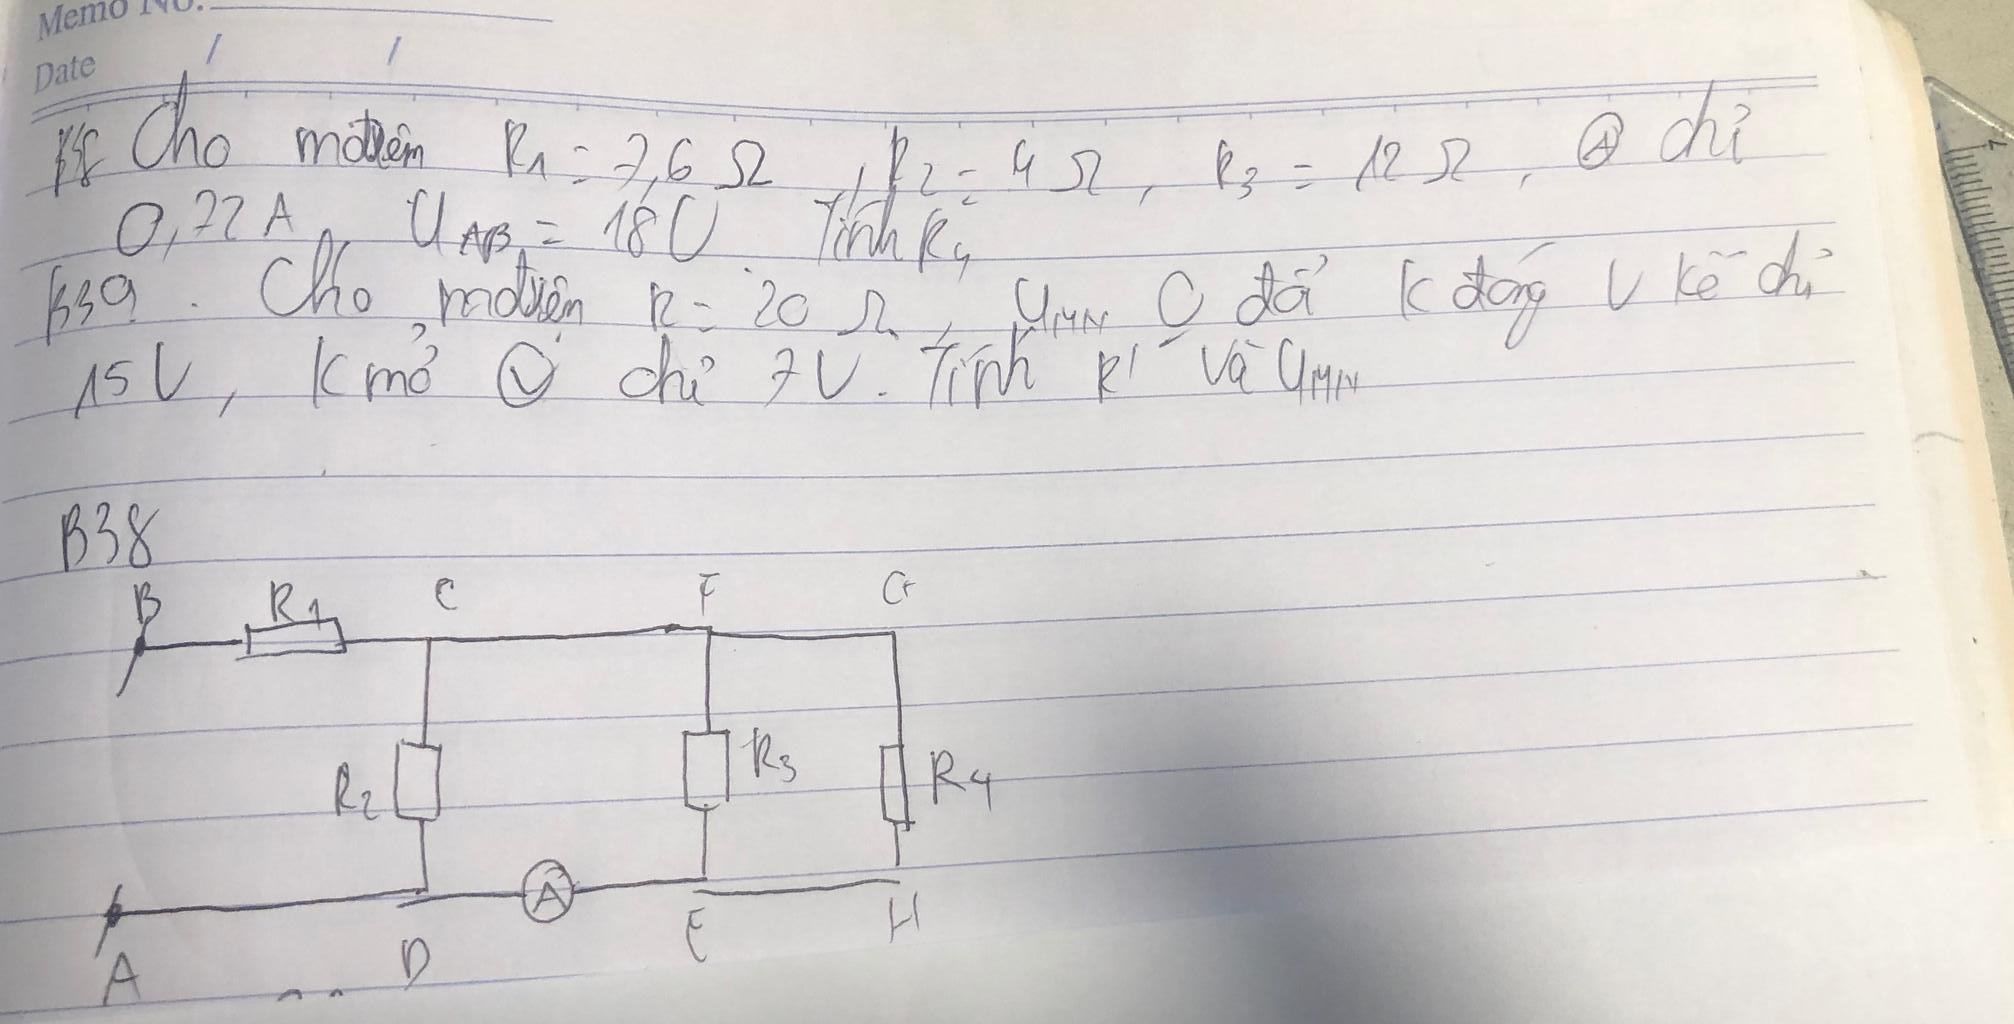 Memo No.
Date / /
Cho mđiện R1 = 7,6 Ω, R2 = 4 Ω, R3 = 12 Ω, A chỉ
0,72A UAB = 18V Tính R4
B39. Cho mđiện R = 20 Ω, UMN đổi K đóng V kế chỉ
15V, K mở V chỉ 7V. Tính R' và UMN
B38
B R1 C F G
R2 R3 R4
A
A D E H